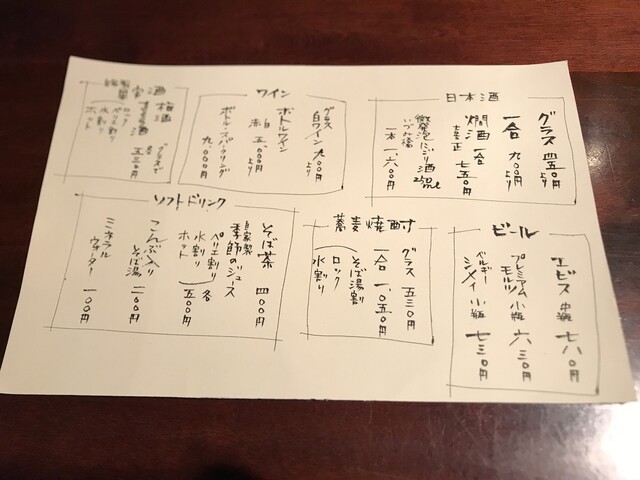 日本酒
グラス 四五〇円より
一合 九〇〇円より
燗酒 一合 七五〇円
微発泡にごり酒
いづみ橋
一本 一、六〇〇円
ワイン
グラス
白ワイン 九〇〇円より
ボトルワイン
五、〇〇〇円より
ボトル・スパークリング
九、〇〇〇円
酒
梅酒
グラスで
各 五三〇円
ロック
水割り
ホット
ビール
エビス 中瓶 七六〇円
プレミアムモルツ 小瓶 六三〇円
ベルギー
シメイ 小瓶 七三〇円
蕎麦焼酎
グラス 五三〇円
一合 一、〇五〇円
そば湯割
ロック
水割り
ソフトドリンク
そば茶 四〇〇円
自家製
季節のジュース
ペリエ割り
水割り
ホット
各 五〇〇円
こんぶ入り
そば湯 二〇〇円
ミネラル
ウォーター 一〇〇円